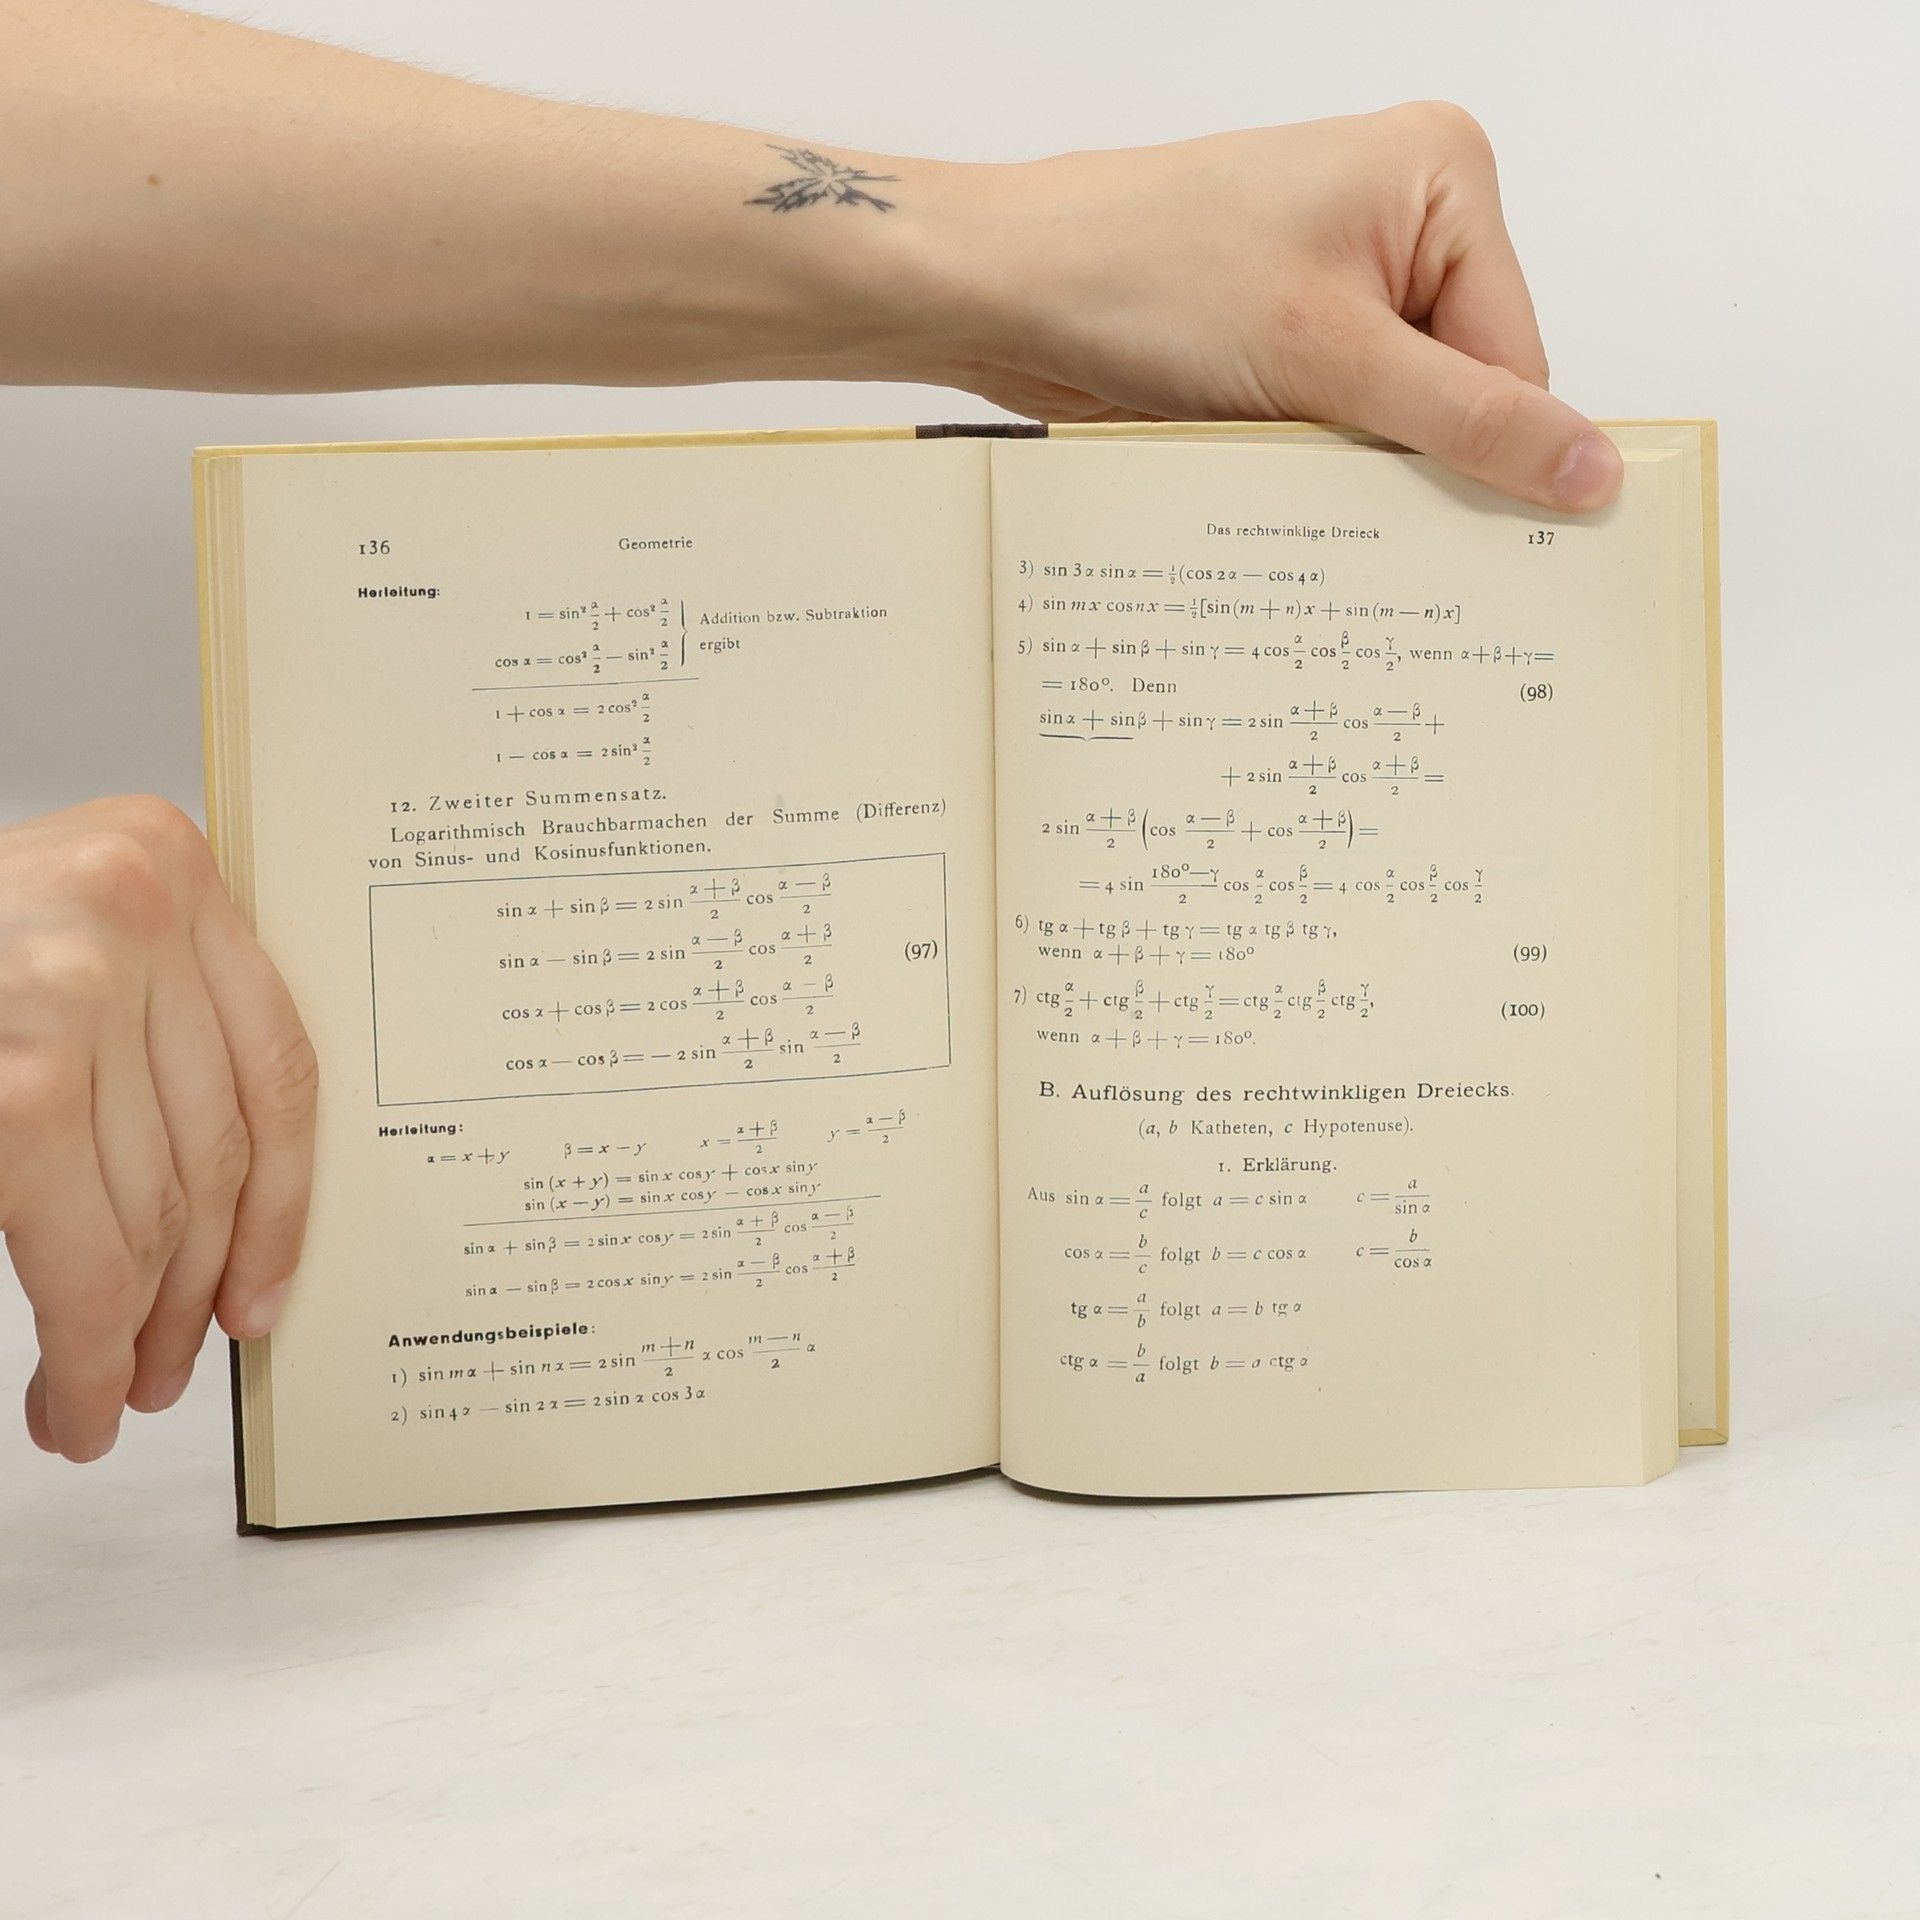 136 Geometrie
Herleitung:
1 = sin² α/2 + cos² α/2 } Addition bzw. Subtraktion
cos α = cos² α/2 − sin² α/2 } ergibt
1 + cos α = 2 cos² α/2
1 − cos α = 2 sin² α/2
12. Zweiter Summensatz.
Logarithmisch Brauchbarmachen der Summe (Differenz)
von Sinus- und Kosinusfunktionen.
sin α + sin β = 2 sin (α + β)/2 cos (α − β)/2
sin α − sin β = 2 sin (α − β)/2 cos (α + β)/2 (97)
cos α + cos β = 2 cos (α + β)/2 cos (α − β)/2
cos α − cos β = − 2 sin (α + β)/2 sin (α − β)/2
Herleitung:
α = x + y β = x − y x = (α + β)/2 y = (α − β)/2
sin (x + y) = sin x cos y + cos x sin y
sin (x − y) = sin x cos y − cos x sin y
sin α + sin β = 2 sin x cos y = 2 sin (α + β)/2 cos (α − β)/2
sin α − sin β = 2 cos x sin y = 2 sin (α − β)/2 cos (α + β)/2
Anwendungsbeispiele:
1) sin m α + sin n α = 2 sin (m + n)/2 α cos (m − n)/2 α
2) sin 4 α − sin 2 α = 2 sin α cos 3 α
Das rechtwinklige Dreieck 137
3) sin 3 α sin α = ½ (cos 2 α − cos 4 α)
4) sin m x cos n x = ½ [sin (m + n) x + sin (m − n) x]
5) sin α + sin β + sin γ = 4 cos α/2 cos β/2 cos γ/2, wenn α + β + γ =
= 180⁰. Denn (98)
sin α + sin β + sin γ = 2 sin (α + β)/2 cos (α − β)/2 +
+ 2 sin (α + β)/2 cos (α + β)/2 =
2 sin (α + β)/2 (cos (α − β)/2 + cos (α + β)/2) =
= 4 sin (180⁰ − γ)/2 cos α/2 cos β/2 = 4 cos α/2 cos β/2 cos γ/2
6) tg α + tg β + tg γ = tg α tg β tg γ,
wenn α + β + γ = 180⁰ (99)
7) ctg α/2 + ctg β/2 + ctg γ/2 = ctg α/2 ctg β/2 ctg γ/2, (100)
wenn α + β + γ = 180⁰.
B. Auflösung des rechtwinkligen Dreiecks.
(a, b Katheten, c Hypotenuse).
1. Erklärung.
Aus sin α = a/c folgt a = c sin α c = a/sin α
cos α = b/c folgt b = c cos α c = b/cos α
tg α = a/b folgt a = b tg α
ctg α = b/a folgt b = a ctg α